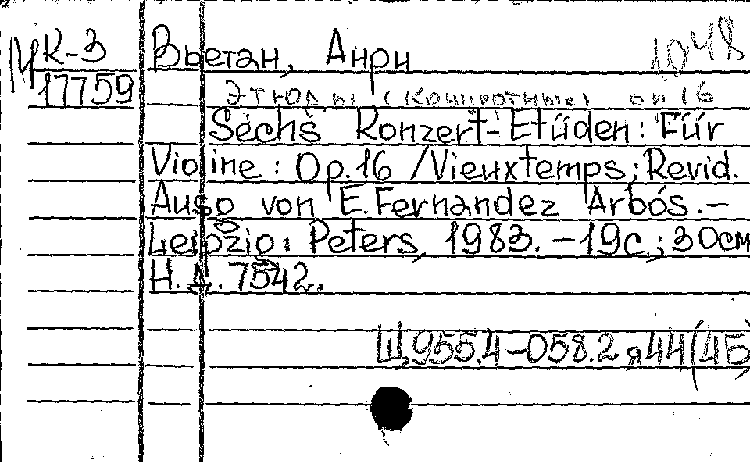 МК-3 Вьетан, Анри 1048
17759 Этюды (концертные) оп 16
Sechs Konzert-Etüden: Für
Violine: Op.16 /Vieuxtemps; Revid.
Ausg von E. Fernandez Arbós. –
Leipzig: Peters, 1983. – 19с; 30см
Н.д. 7542.
Щ955.4-058.2я44(4Б)